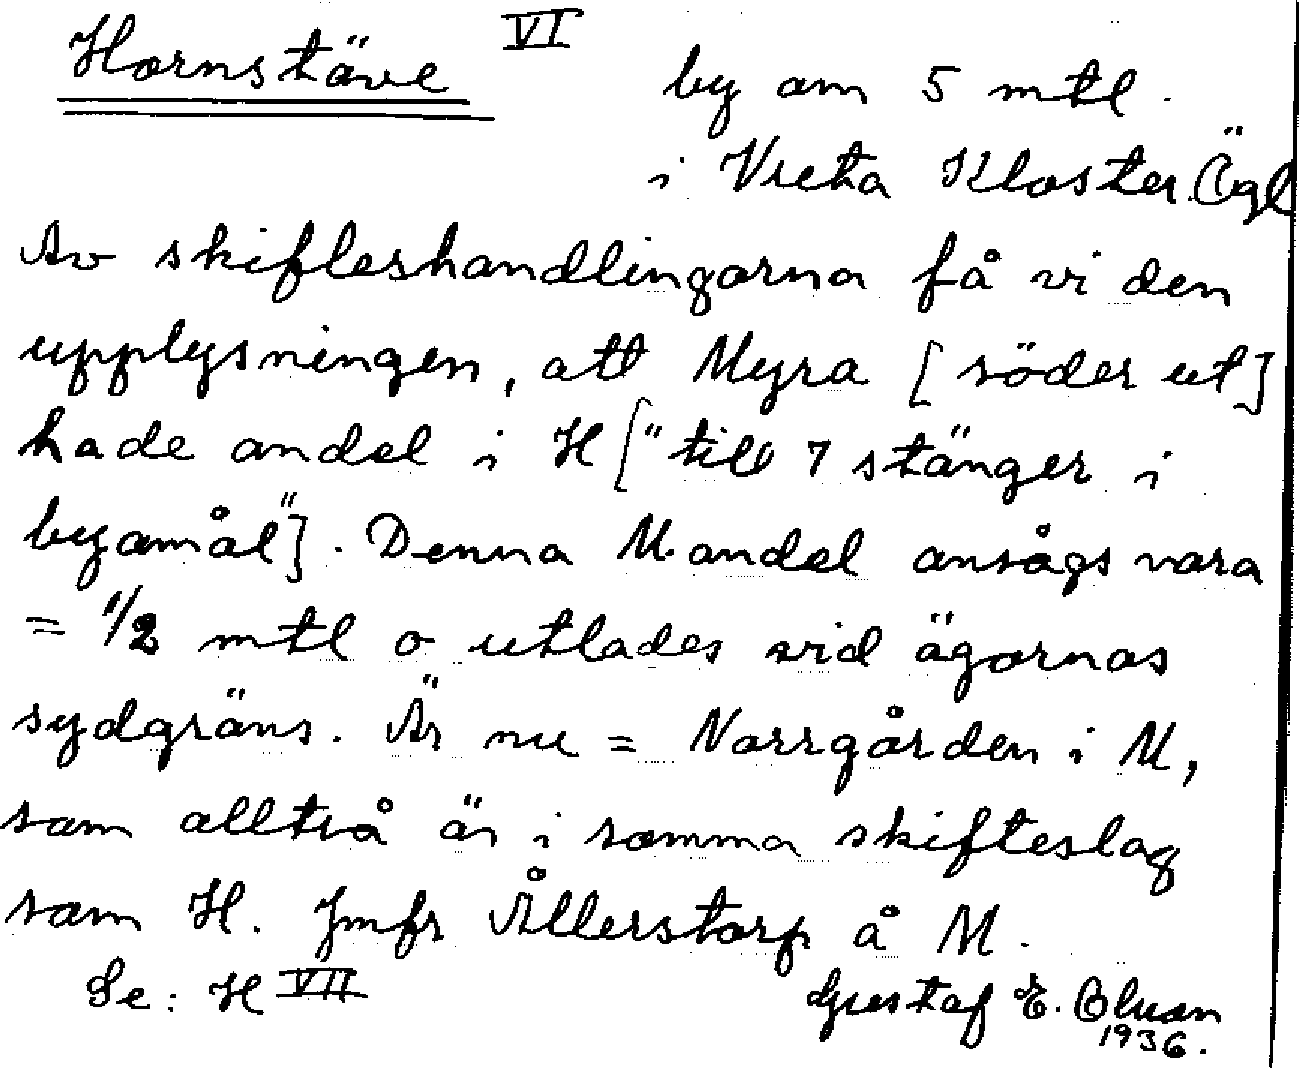 Hornstäve VI
by om 5 mtl.
i Vreta Kloster Ögl
Av skifteshandlingarna få vi den
upplysningen, att Myra [söder ut]
hade andel i H ["till 7 stänger i
byamål"]. Denna M andel ansågs vara
= 1/2 mtl o utlades vid ägornas
sydgräns. Är nu = Norrgården i M,
som alltså är i samma skifteslag
som H. Jmfr Ållerstorp å M.
Se: H VII
Gustaf E. Olson
1936.